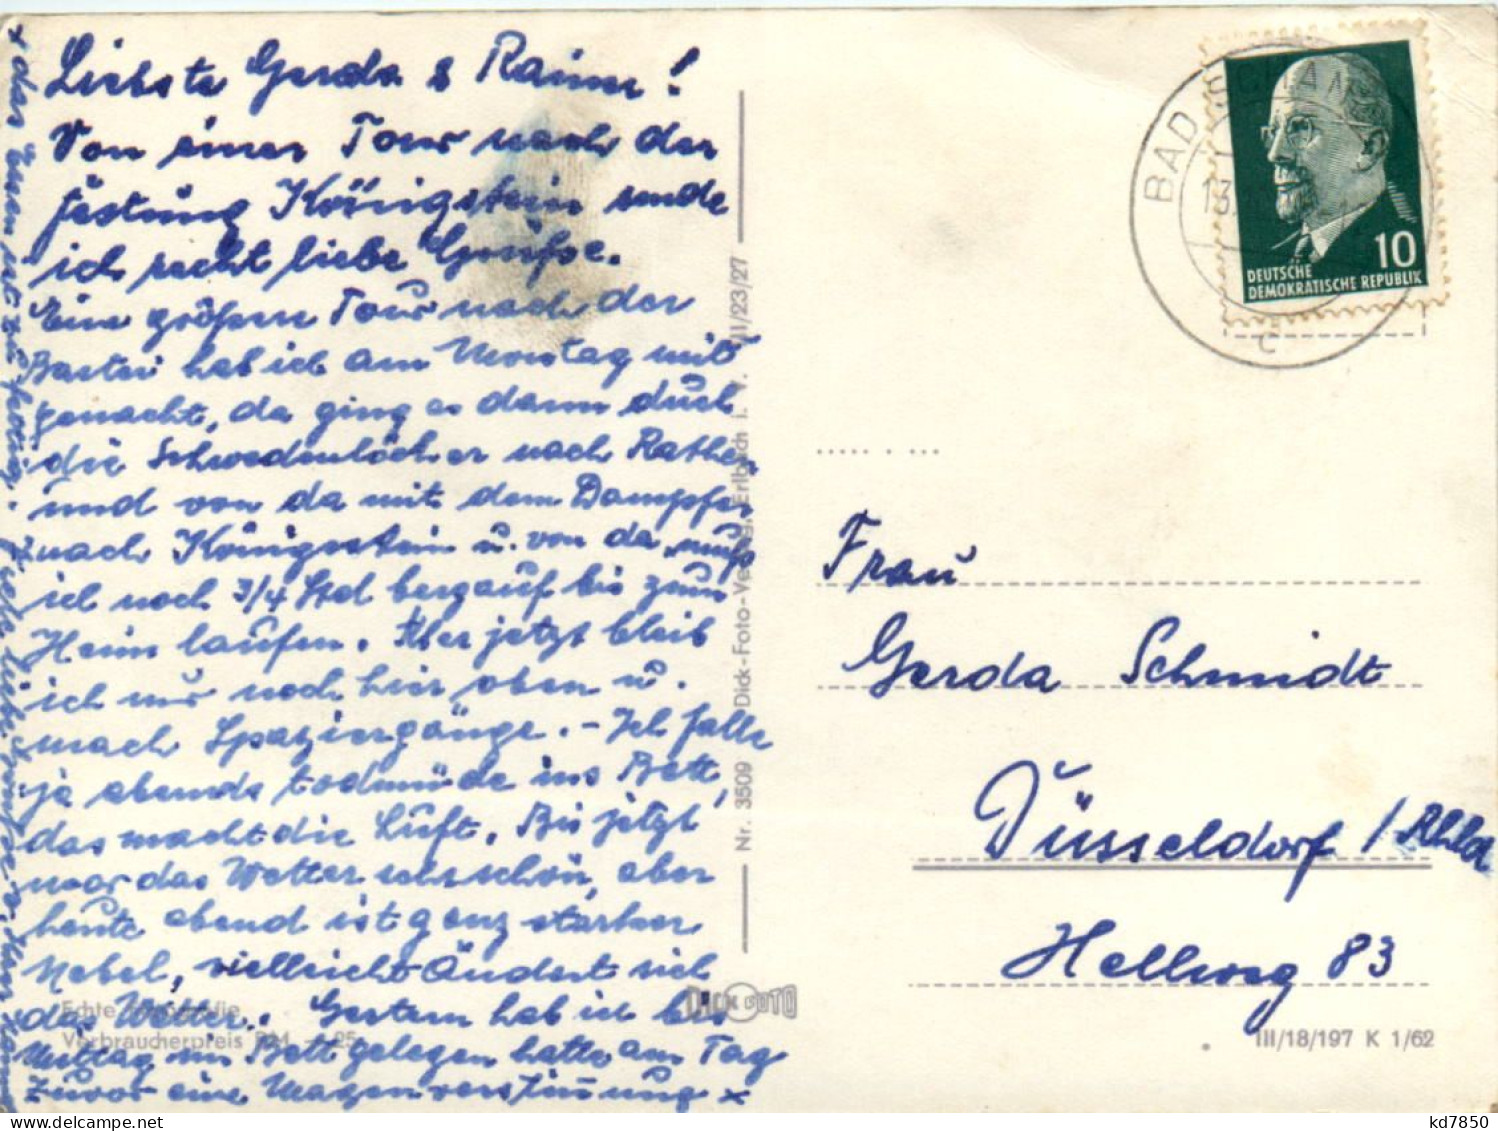 Liebste Gerda & Rainer!
Von einer Tour nach der
Festung Königstein sende
ich recht liebe Grüße.
Eine größere Tour nach der
Bastei hab ich am Montag mit
gemacht, da ging es dann durch
die Schwedenlöcher nach Rathen
und von da mit dem Dampfer
nach Königstein u. von da muß
ich noch 3/4 Std bergauf bis zum
Heim laufen. Aber jetzt bleib
ich nur noch hier oben u.
mach Spaziergänge. – Ich falle
ja abends todmüde ins Bett,
das macht die Luft. Bis jetzt
war das Wetter sehr schön, aber
heute abend ist ganz starker
Nebel, vielleicht ändert sich
das Wetter. Gestern hab ich bis
Mittag im Bett gelegen hatte am Tag
zuvor eine Magenverstimmung x
x das Essen ist zu
Echte Fotografie
Verbraucherpreis DM -,25
Nr. 3509 Dick-Foto-Verlag, Erlbach i. V. III/23/27
DICK FOTO
BAD SCHANDAU
13.
c
10
DEUTSCHE
DEMOKRATISCHE REPUBLIK
Frau
Gerda Schmidt
Düsseldorf / Rhld
Hellweg 83
III/18/197 K 1/62
kd7850